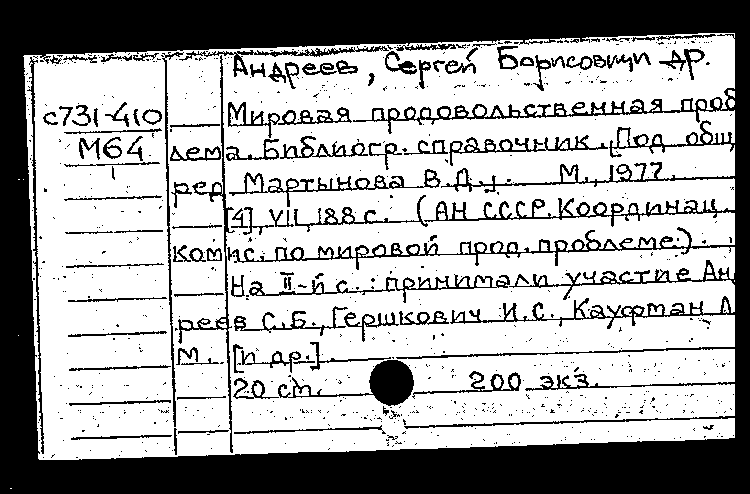 Андреев, Сергей Борисович и др.
с731-410
М64
Мировая продовольственная проб
лема. Библиогр. справочник. [Под общ
ред Мартынова В.Д.]. М., 1977.
[4], VII, 188 с. (АН СССР. Координац.
комис. по мировой прод. проблеме).
На II-й с.: принимали участие Анд
реев С.Б., Гершкович И.С., Кауфман Л
М. [и др.].
20 cm. 200 экз.